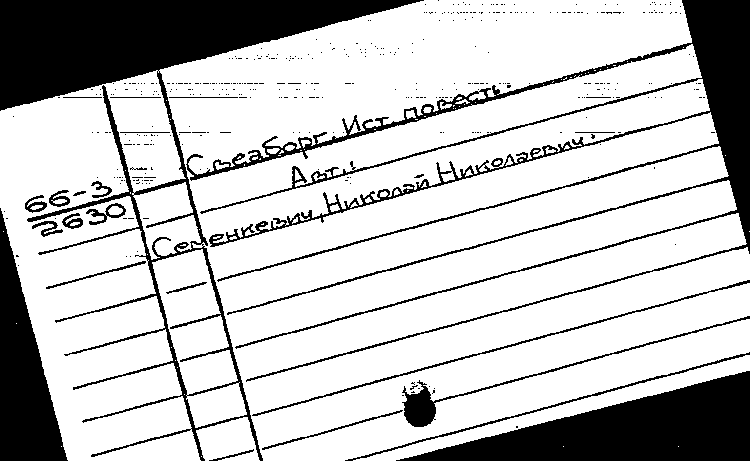 Свеаборг. Ист. повесть.
66-3
2630
Авт.:
Семенкевич, Николай Николаевич.